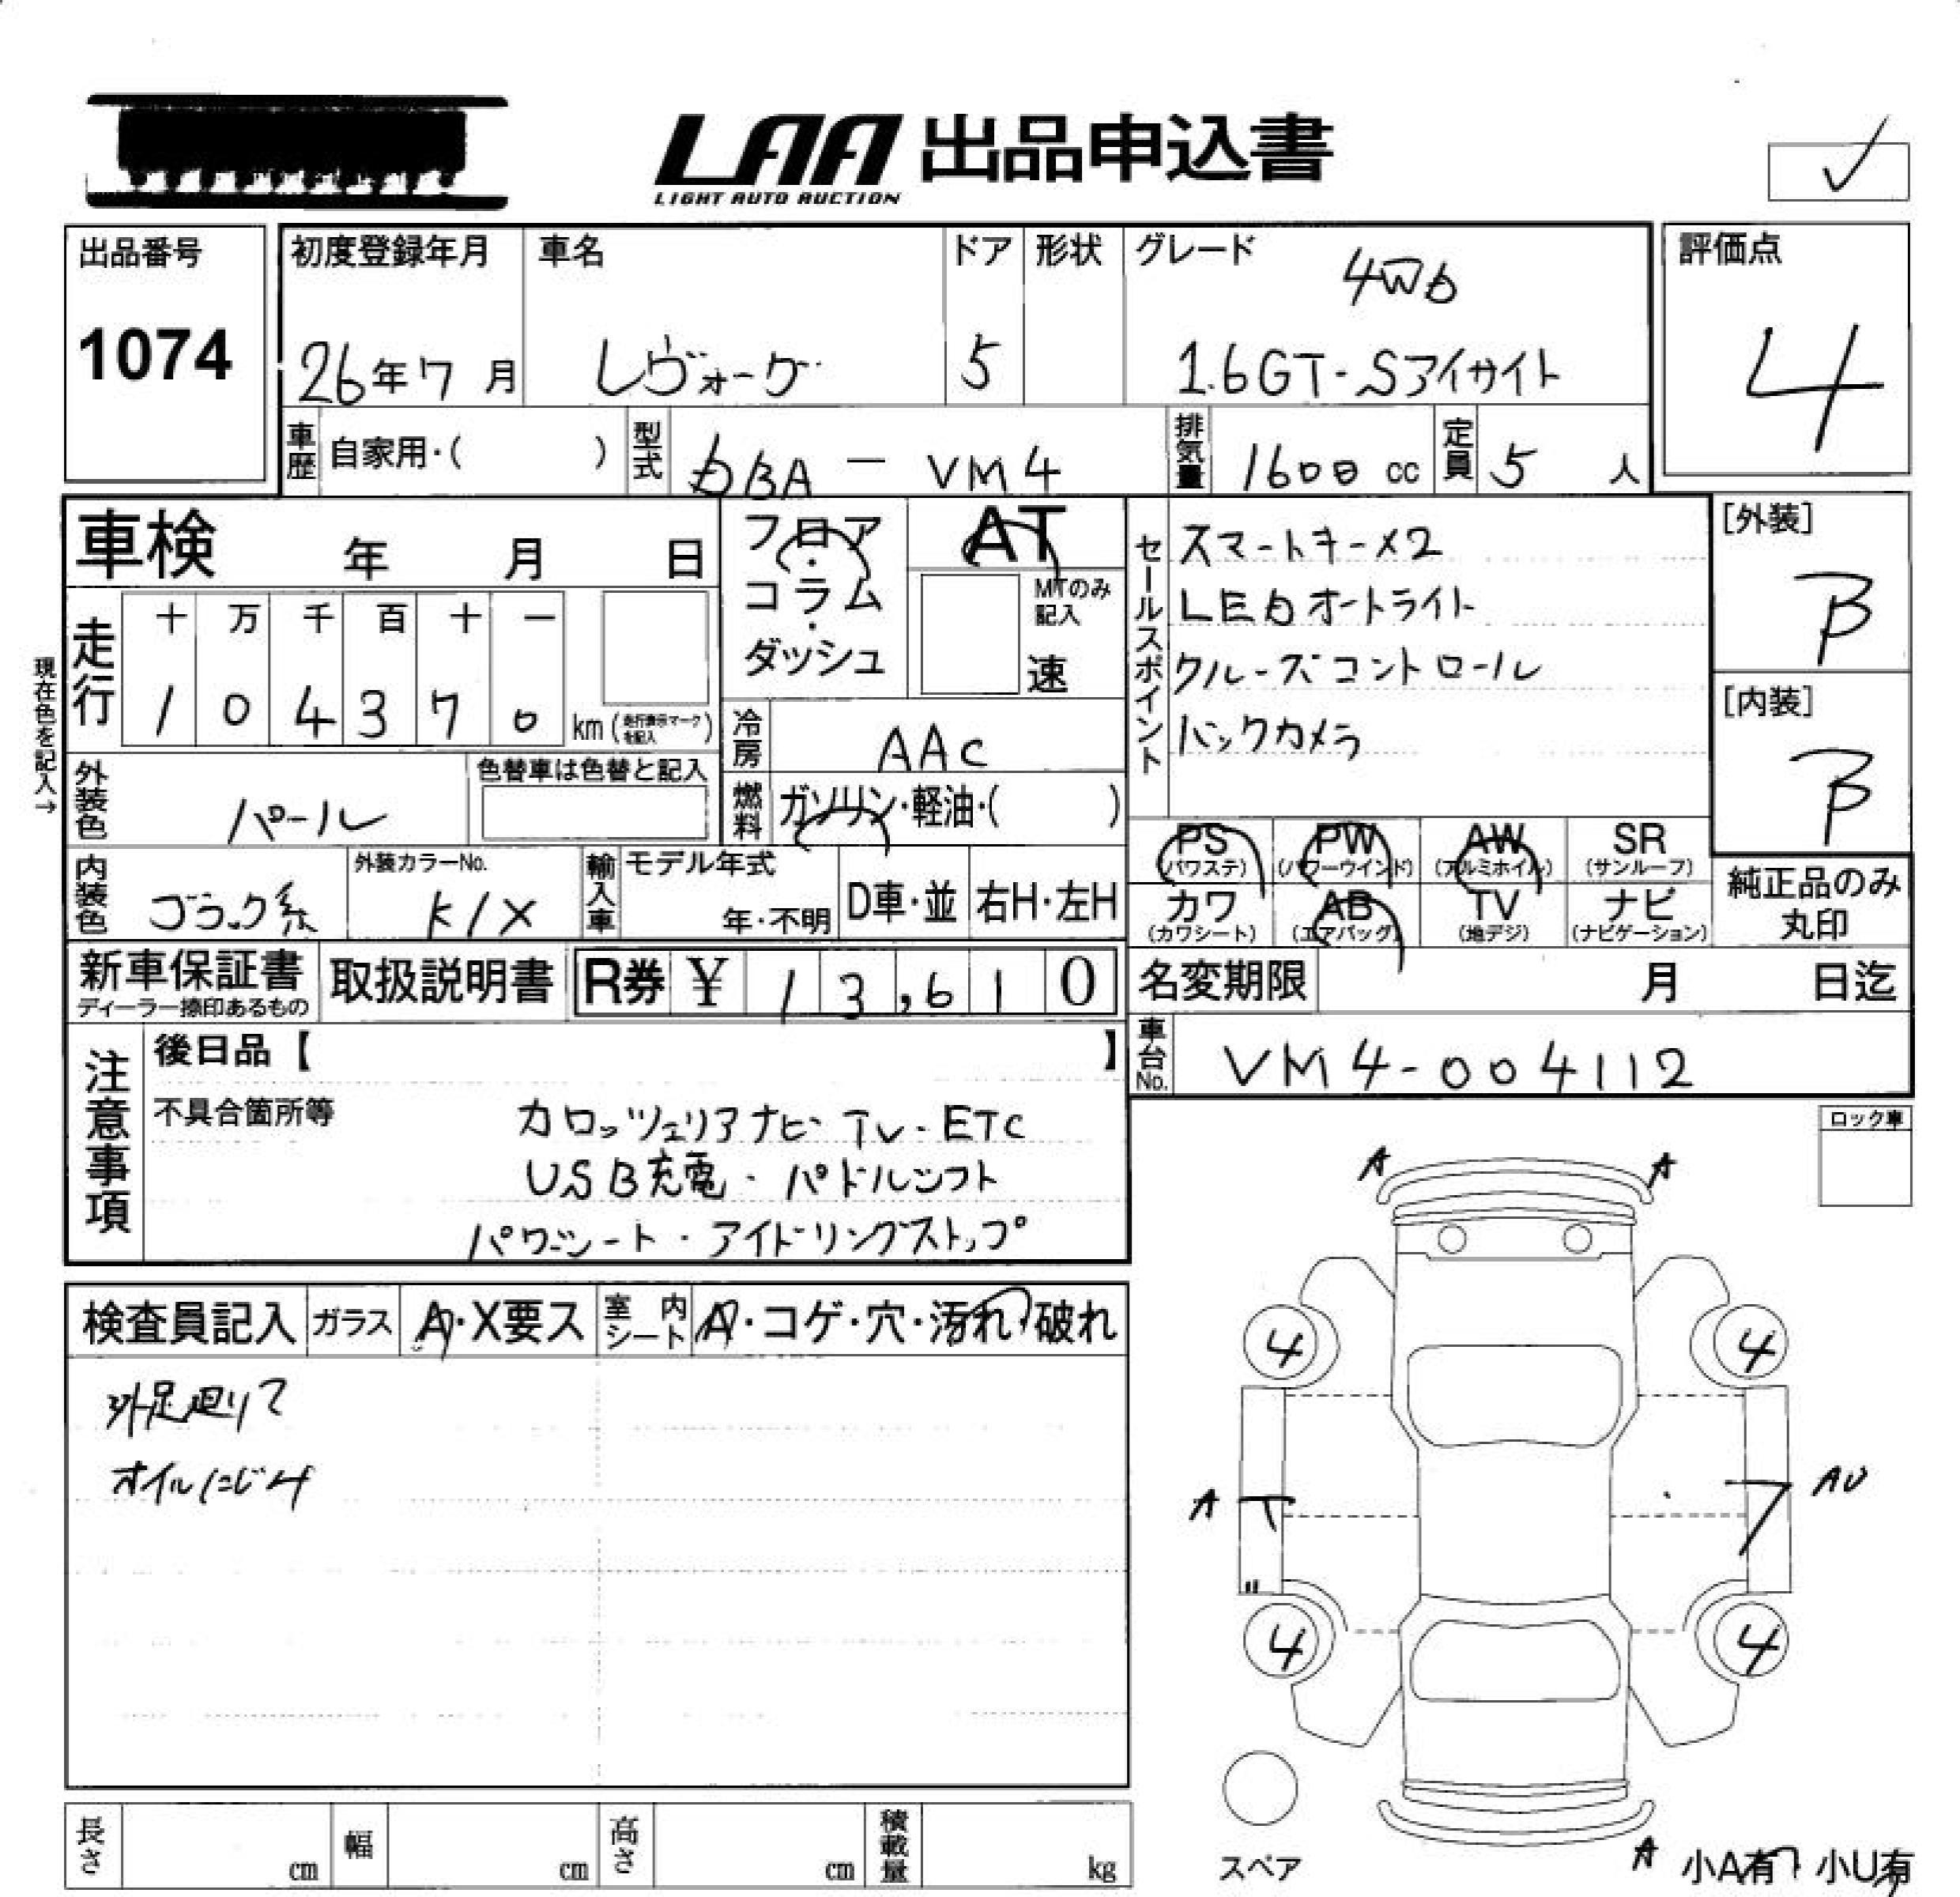 LAA 出品申込書
LIGHT AUTO AUCTION
出品番号
1074
初度登録年月
26年7月
車名
レヴォーグ
ドア
5
形状
グレード
4WD
1.6GT-Sアイサイト
評価点
4
車歴 自家用・( )
型式 DBA－VM4
排気量 1600 cc
定員 5 人
車検 年 月 日
フロア・コラム・ダッシュ
AT
MTのみ記入
速
セールスポイント
スマートキー×2
LEDオートライト
クルーズコントロール
バックカメラ
[外装]
B
[内装]
B
現在色を記入→
走行
十 万 千 百 十 一
1 0 4 3 7 0 km (走行表示マークを記入)
冷房 AAC
外装色 パール
色替車は色替と記入
燃料 ガソリン・軽油・( )
PS (パワステ)
PW (パワーウインド)
AW (アルミホイル)
SR (サンルーフ)
カワ (カワシート)
AB (エアバッグ)
TV (地デジ)
ナビ (ナビゲーション)
純正品のみ丸印
内装色 ブラック系
外装カラーNo.
K1X
輸入車
モデル年式
年・不明
D車・並
右H・左H
新車保証書
ディーラー捺印あるもの
取扱説明書
R券 ¥ 13,610
名変期限 月 日迄
車台No. VM4-004112
注意事項
後日品【 】
不具合箇所等
カロッツェリアナビ・TV・ETC
USB充電・パドルシフト
パワーシート・アイドリングストップ
ロック車
検査員記入
ガラス A・X要ス
室内シート A・コゲ・穴・汚れ・破れ
外足廻りサ
オイルにじみ
A A
4 4
A AU
4 4
スペア
A 小A有・小U有
長さ cm
幅 cm
高さ cm
積載量 kg